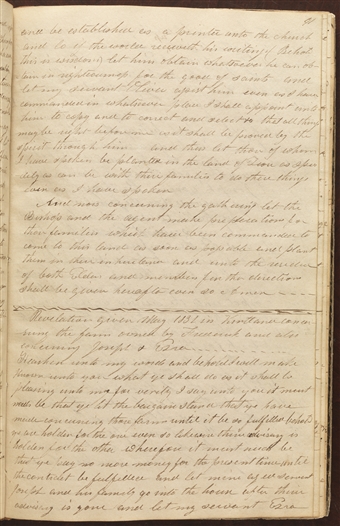 91
and be established as a printer unto the church
and lo if the world receiveth his writing (Behold
this is wisdom) let him obtain whatsoever he can ob-
tain in righteousness for the good of saints and
let my servant Oliver assist him even as I have
commanded in whatsoever place I shall appoint unto
him to copy and to correct and select &c that all things
may be right before me as it shall be proven by the
spirit through him and thus let those of whom
I have spoken be planted in the land of Zion as spee-
dily as can be with their families to do these things
even as I have spoken
And now concerning the gathering let the
Bishop and the agent make preparations for
those families which have been commanded to
come to this land as soon as possible and plant
them in their inheritance and unto the residue
of both Elders and members further directions
shall be given hereafter even so Amen
Revelation given May 1831 in Kirtland concer-
ning the farm owned by Frederick and also
concerning Joseph & Ezra
Hearken unto my words and behold I will make
known unto you what ye shall do as it shall be
pleasing unto me for verily I say unto you it must
needs be that ye let the bargain stand that ye have
made concerning those farms until it be so fulfilled behold
ye are holden for the one even so likewise thine adversary is
holden for the other wherefore it must needs be
that ye pay no more money for the present time until
the contract be fulfilled and let mine aged servant
Joseph and his family go into the house after thine
adversary is gone and let my servant Ezra